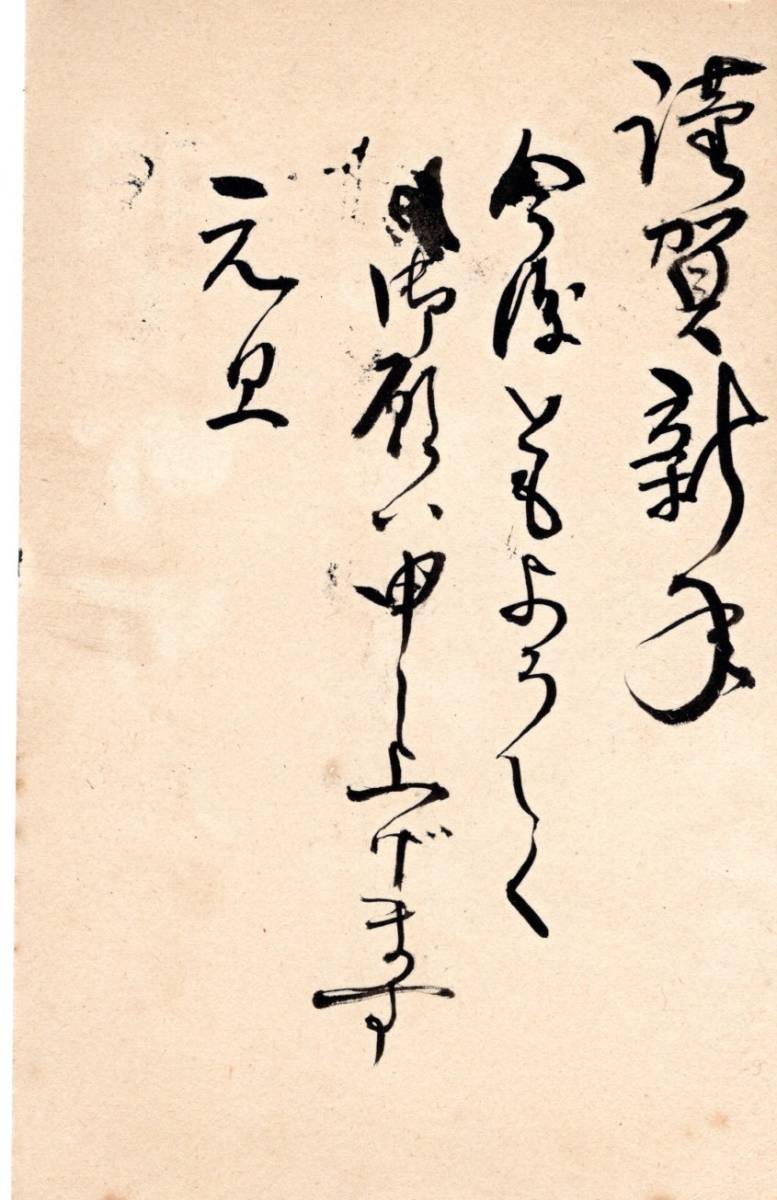 謹賀新年
今後ともよろしく
御願い申し上げます
元旦